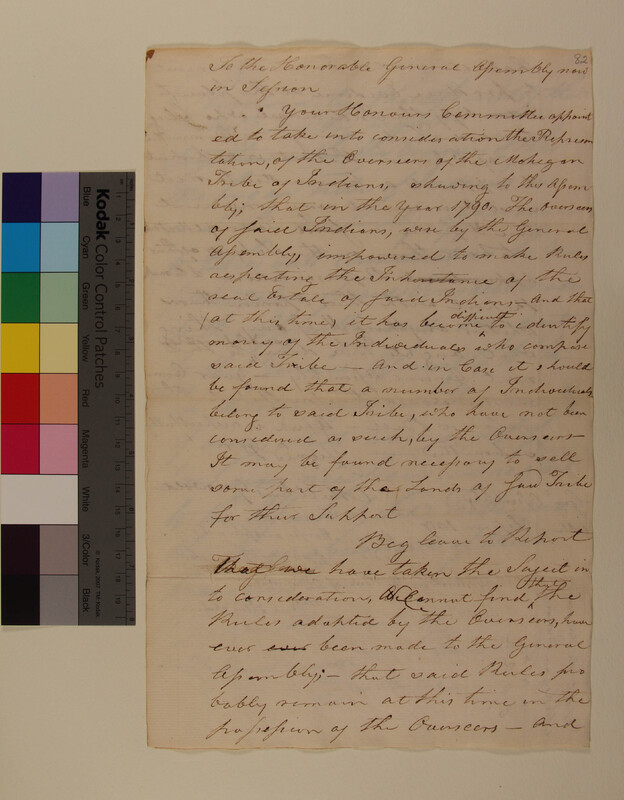 82
To the Honorable General Assembly now
in Session
Your Honours Committee appoint
ed to take into consideration the Represen
tation, of the Overseers of the Mohegan
Tribe of Indians, shewing to this Assem
bly; that in the Year 1790. The Overseers
of said Indians, were by the General
Assembly, impowered to make Rules
respecting the Inheritance of the
real Estate of said Indians — And that
at this time, it has become difficult to identify
many of the Individuals who compose
said Tribe — And in Case it should
be found that a number of Individuals
belong to said Tribe, who have not been
considered as such, by the Overseers —
It may be found necessary to sell
some part of the Lands of said Tribe
for their Support
Beg leave to Report
That we have taken the Suject in
to consideration, We Cannot find that the
Rules adopted by the Overseers, have
ever ever been made to the General
Assembly; — that said Rules pro
bably remain at this time in the
possession of the Overseers — And
Kodak Color Control Patches
Blue
Cyan
Green
Yellow
Red
Magenta
White
3/Color
Black